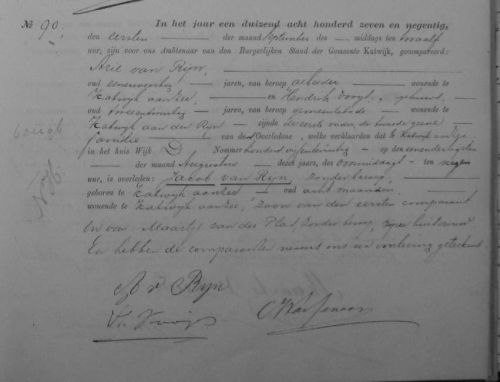 No 90.
In het jaar een duizend acht honderd zeven en negentig,
den eersten der maand September des middags ten twaalf
ure, zijn voor ons Ambtenaar van den Burgerlijken Stand der Gemeente Katwijk, gecompareerd:
Arie van Rijn,
oud jaren, van beroep arbeider wonende te
Katwijk aan Zee en Hendrik
oud jaren, van beroep gemeentebode wonende te
Katwijk aan den Rijn zijnde de eerste vader de tweede geene
familie van den Overledene, welke verklaarden dat te Katwijk aan Zee
in het huis Wijk D Nommer honderd op den een en dertigsten
der maand Augustus dezes jaars, des voormiddags ten negen
ure, is overleden: Jacob van Rijn, zonder beroep,
geboren te Katwijk aan Zee oud acht maanden,
wonende te Katwijk aan Zee, zoon van den eersten comparant
en van Maartje van der Plas, zonder beroep, zijne huisvrouw
En hebben de comparanten nevens ons na voorlezing geteekend.
A v Rijn